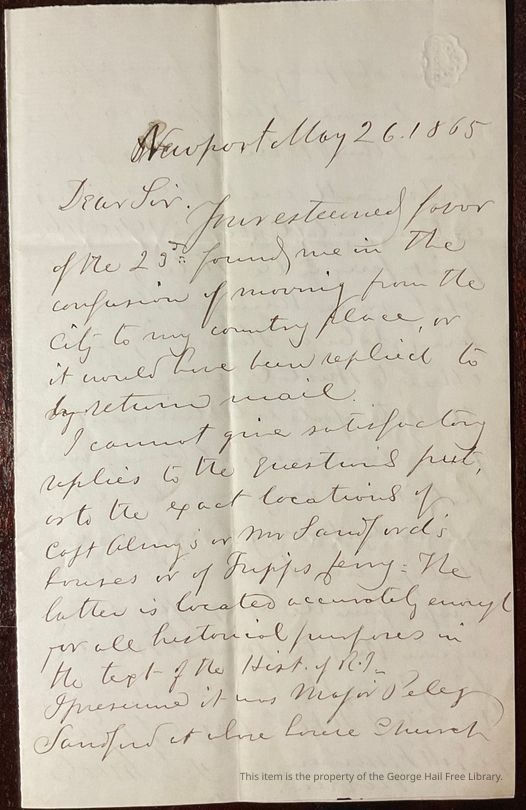 Newport May 26. 1865
Dear Sir.
Your esteemed favor
of the 23d found me in the
confusion of moving from the
City to my country place, or
it would have been replied to
by return mail.
I cannot give satisfactory
replies to the questions put,
as to the exact locations of
Capt Almy's or Mr Sandford's
houses or of Tripps ferry. The
latter is located accurately enough
for all historical purposes in
the text of the Hist. of R.I.
I presume it was Major Peleg
Sandford at whose house Church
This item is the property of the George Hail Free Library.